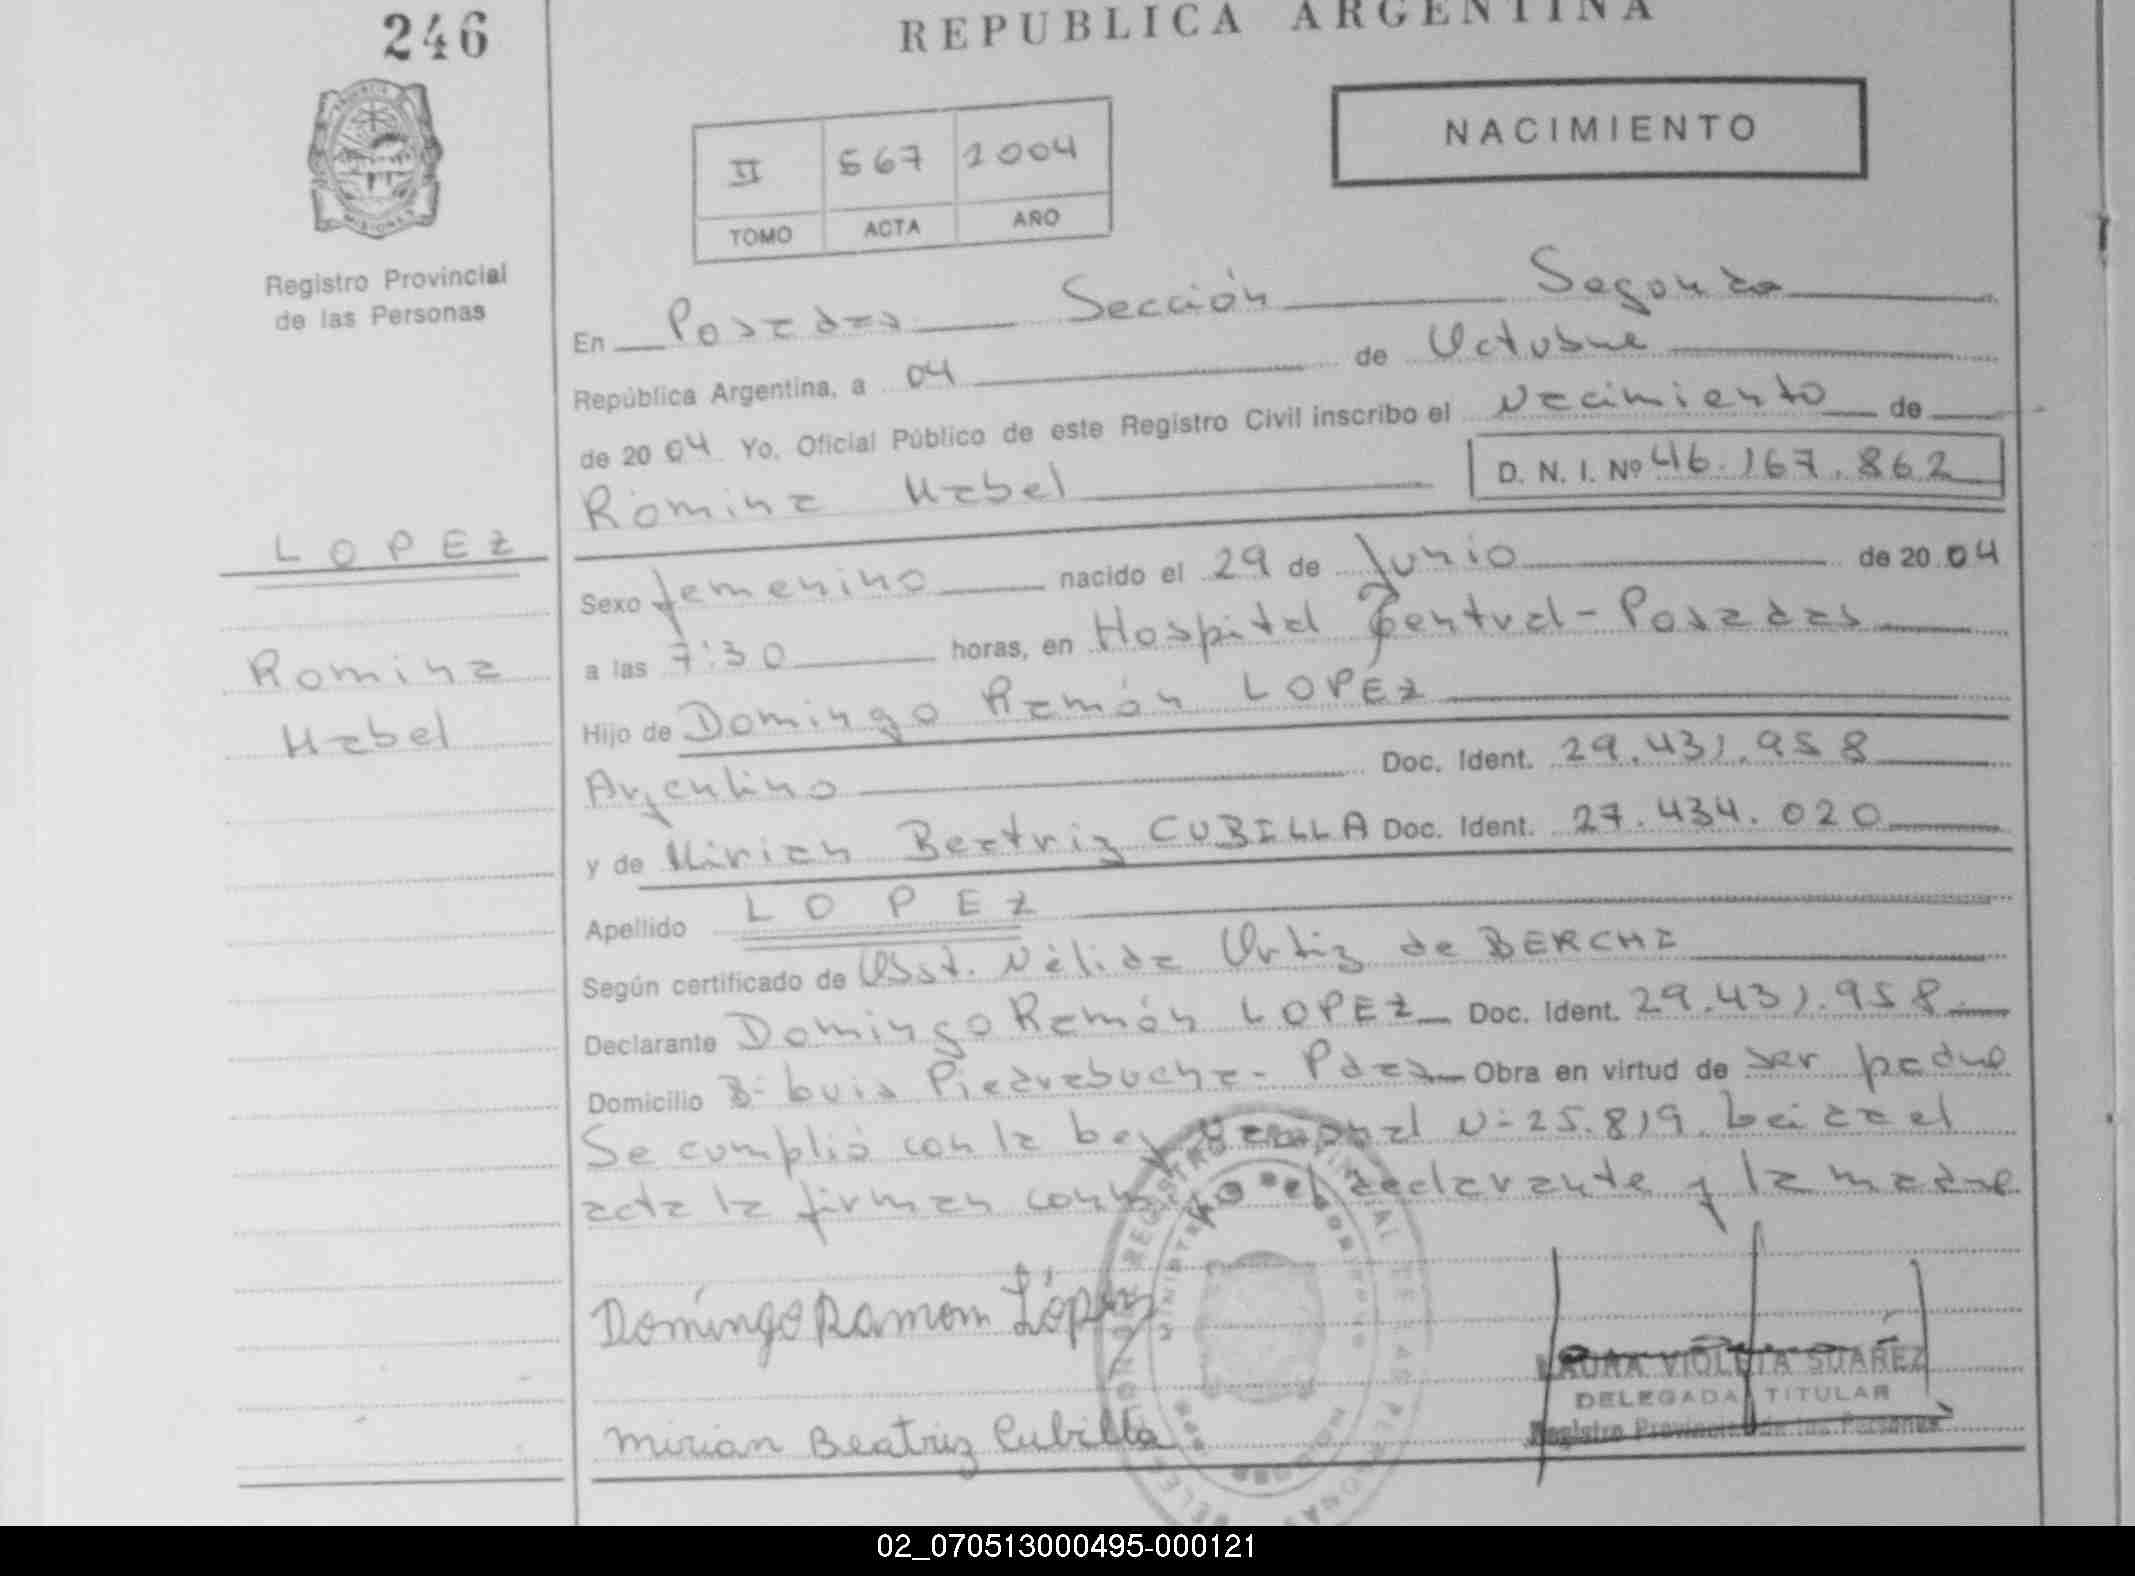 246
REPUBLICA ARGENTINA
NACIMIENTO
II 567 2004
TOMO ACTA AÑO
Registro Provincial
de las Personas
En Posadas Sección Segunda
República Argentina, a 04 de Octubre
de 2004 Yo, Oficial Público de este Registro Civil inscribo el Nacimiento de
Romina Mabel D. N. I. Nº 46.167.862
LOPEZ
Romina
Mabel
Sexo femenino nacido el 29 de Junio de 2004
a las 7:30 horas, en Hospital Central - Posadas
Hijo de Domingo Ramón LOPEZ
Argentino Doc. Ident. 29.431.958
y de Mirian Beatriz CUBILLA Doc. Ident. 27.434.020
Apellido LOPEZ
Según certificado de Obst. Nélida Ortiz de BERCHI
Declarante Domingo Ramón LOPEZ Doc. Ident. 29.431.958
Domicilio Bº Luis Piedrabuena - Pdas Obra en virtud de ser padre
Se cumplió con la Ley Nacional Nº 25.819. Leida el
acta la firman conmigo el declarante y la madre
Domingo Ramom López
Mirian Beatriz Cubilla
LAURA VIOLETA SUAREZ
DELEGADA TITULAR
Registro Provincial de las Personas
02_070513000495-000121